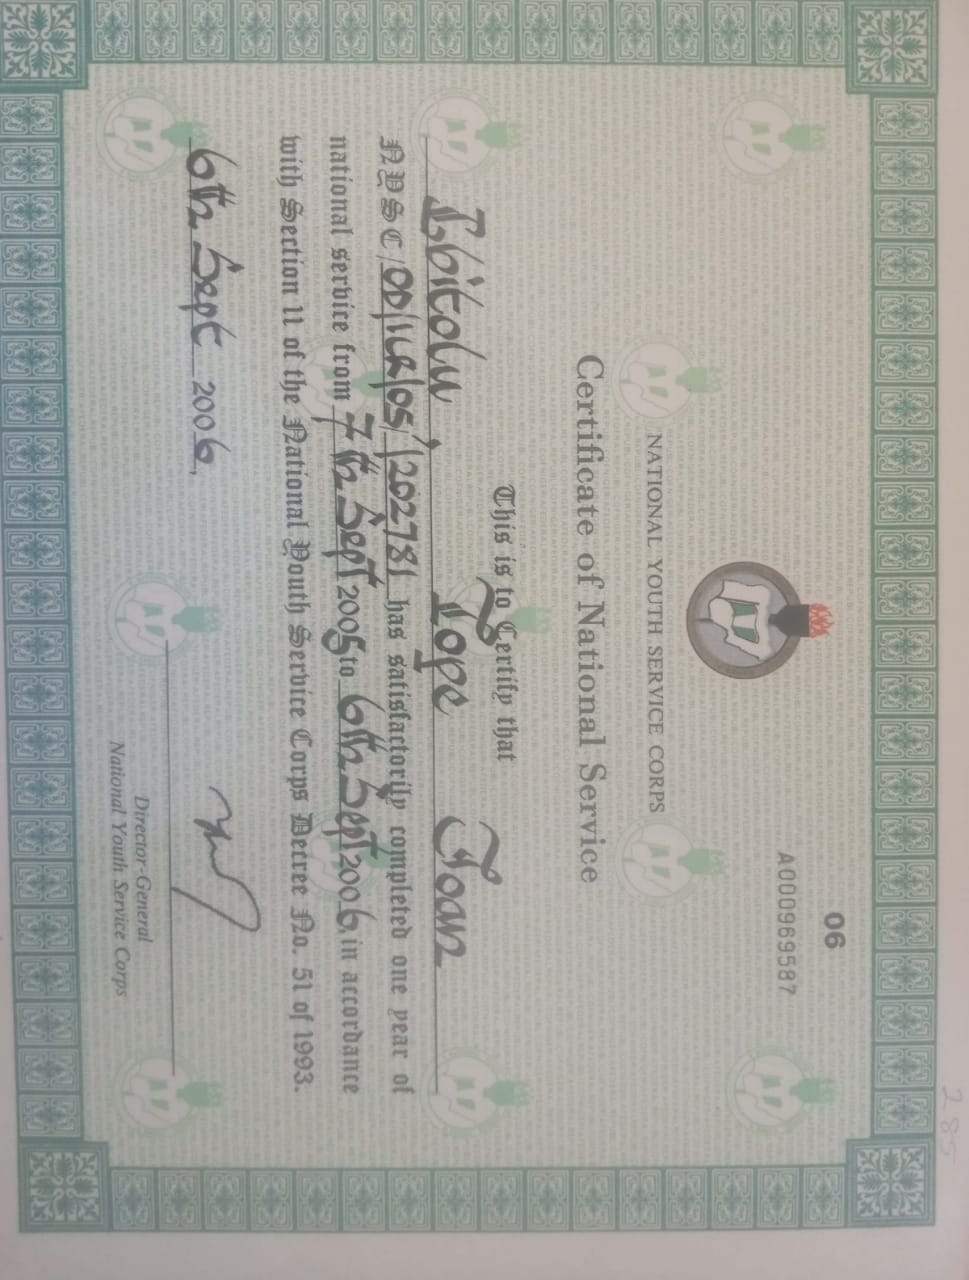 06
A000969587
NATIONAL YOUTH SERVICE CORPS
Certificate of National Service
This is to Certify that
Ibitolu, Tope Joan
NYSC/OD/ILR/05/120278 has satisfactorily completed one year of
national service from 7th Sept 2005 to 6th Sept 2006, in accordance
with Section 11 of the National Youth Service Corps Decree No. 51 of 1993.
6th Sept 2006,
Director-General
National Youth Service Corps
285